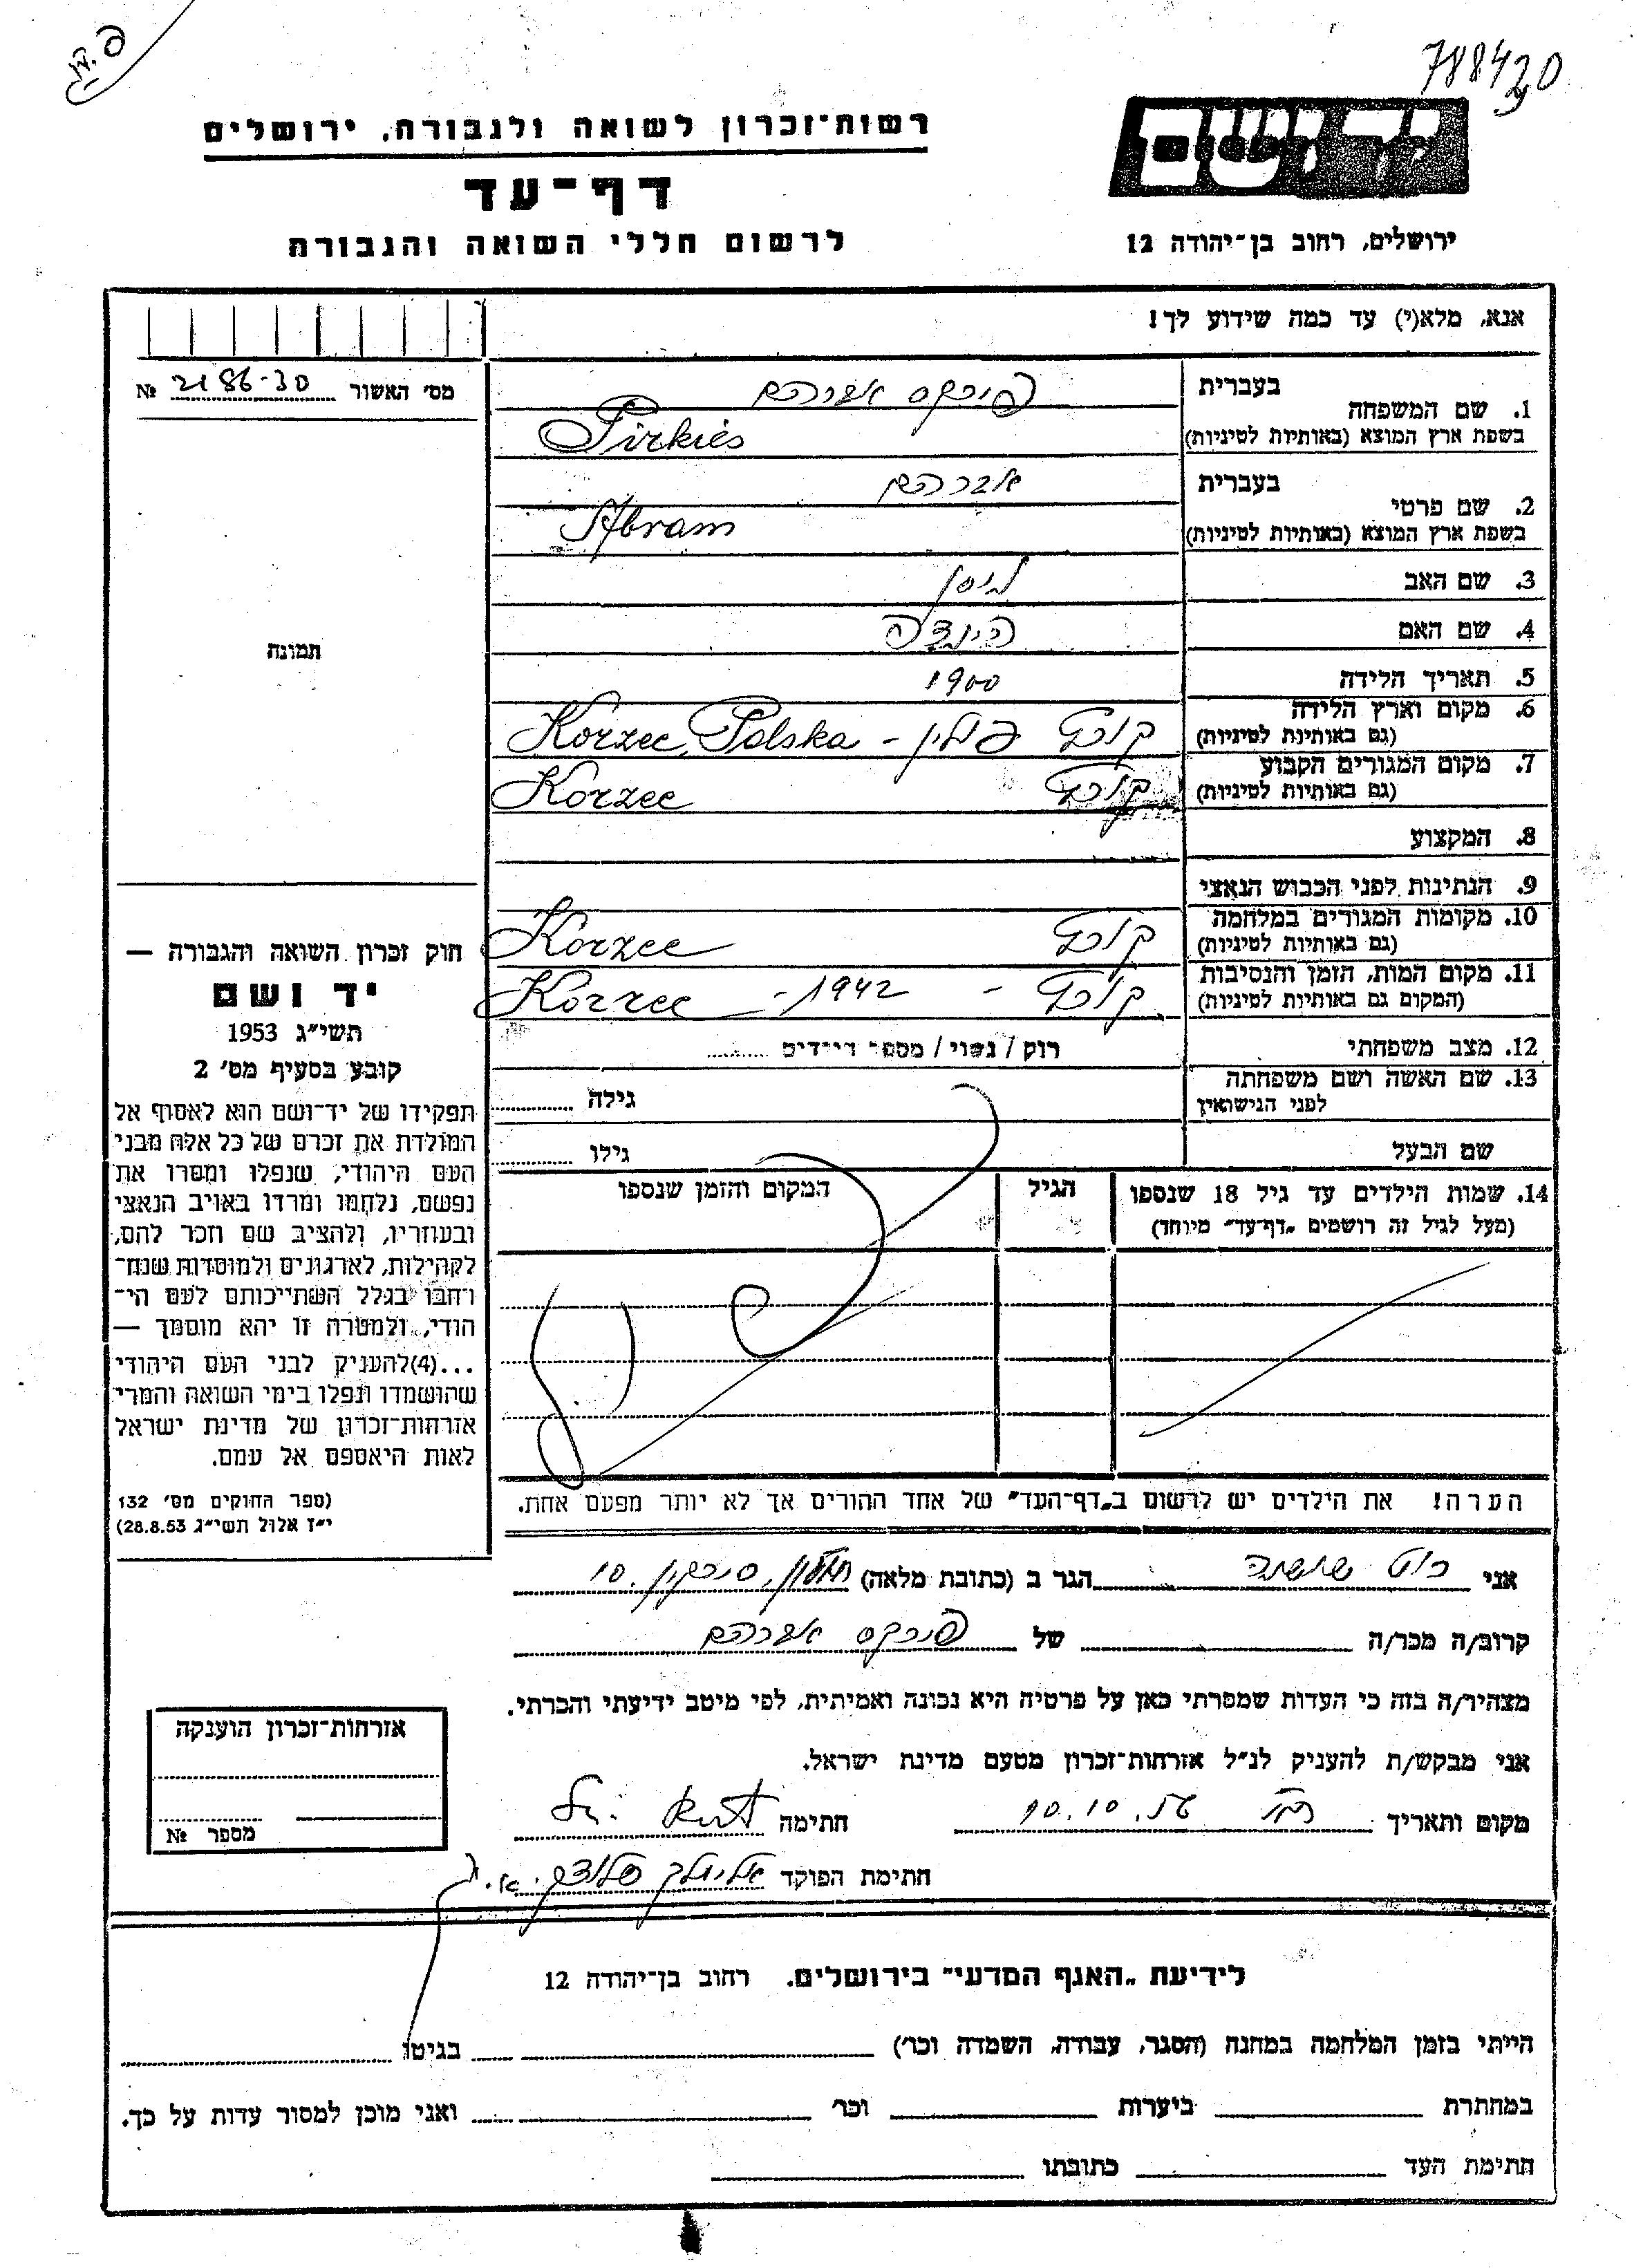 788430
יד ושם
ירושלים, רחוב בן־יהודה 12
רשות־זכרון לשואה ולגבורה, ירושלים
דף־עד
לרשום חללי השואה והגבורה
אנא, מלא(י) עד כמה שידוע לך!
מס׳ האשור 2186-30 №
תמונה
1. שם המשפחה
בעברית פירקס אברהם
בשפת ארץ המוצא (באותיות לטיניות) Pirkies
2. שם פרטי
בעברית אברהם
בשפת ארץ המוצא (באותיות לטיניות) Abram
3. שם האב ניסן
4. שם האם הינדה
5. תאריך הלידה 1900
6. מקום וארץ הלידה
(גם באותיות לטיניות) קורץ פולין - Korzec, Polska
7. מקום המגורים הקבוע
(גם באותיות לטיניות) קורץ Korzec
8. המקצוע
9. הנתינות לפני הכבוש הנאצי
10. מקומות המגורים במלחמה
(גם באותיות לטיניות) קורץ Korzec
11. מקום המות, הזמן והנסיבות
(המקום גם באותיות לטיניות) קורץ - 1942 - Korzec
12. מצב משפחתי רוק / נשוי / מספר הילדים
13. שם האשה ושם משפחתה
לפני הנישואין גילה
שם הבעל גילו
14. שמות הילדים עד גיל 18 שנספו הגיל המקום והזמן שנספו
(מעל לגיל זה רושמים „דף־עד” מיוחד)
הערה! את הילדים יש לרשום ב„דף־העד” של אחד ההורים אך לא יותר מפעם אחת.
חוק זכרון השואה והגבורה —
יד ושם
תשי״ג 1953
קובע בסעיף מס׳ 2
תפקידו של יד־ושם הוא לאסוף אל
המולדת את זכרם של כל אלה מבני
העם היהודי, שנפלו ומסרו את
נפשם, נלחמו ומרדו באויב הנאצי
ובעוזריו, ולהציב שם וזכר להם,
לקהילות, לארגונים ולמוסדות שנח־
רבו בגלל השתייכותם לעם הי־
הודי, ולמטרה זו יהא מוסמך —
...(4)להעניק לבני העם היהודי
שהושמדו ונפלו בימי השואה והמרי
אזרחות־זכרון של מדינת ישראל
לאות היאספם אל עמם.
(ספר החוקים מס׳ 132
י״ז אלול תשי״ג 28.8.53)
אני רוט שושנה הגר ב (כתובת מלאה) חולון, סירקין 10
קרוב/ה מכר/ה של פירקס אברהם
מצהיר/ה בזה כי העדות שמסרתי כאן על פרטיה היא נכונה ואמיתית, לפי מיטב ידיעתי והכרתי.
אני מבקש/ת להעניק לנ״ל אזרחות־זכרון מטעם מדינת ישראל.
מקום ותאריך 10.10. חתימה
חתימת הפוקד
אזרחות־זכרון הוענקה
מספר №
לידיעת „האגף המדעי” בירושלים. רחוב בן־יהודה 12
הייתי בזמן המלחמה במחנה (הסגר, עבודה, השמדה וכר׳) בגיטו
במחתרת ביערות וכר׳ ואני מוכן למסור עדות על כך.
חתימת העד כתובתו